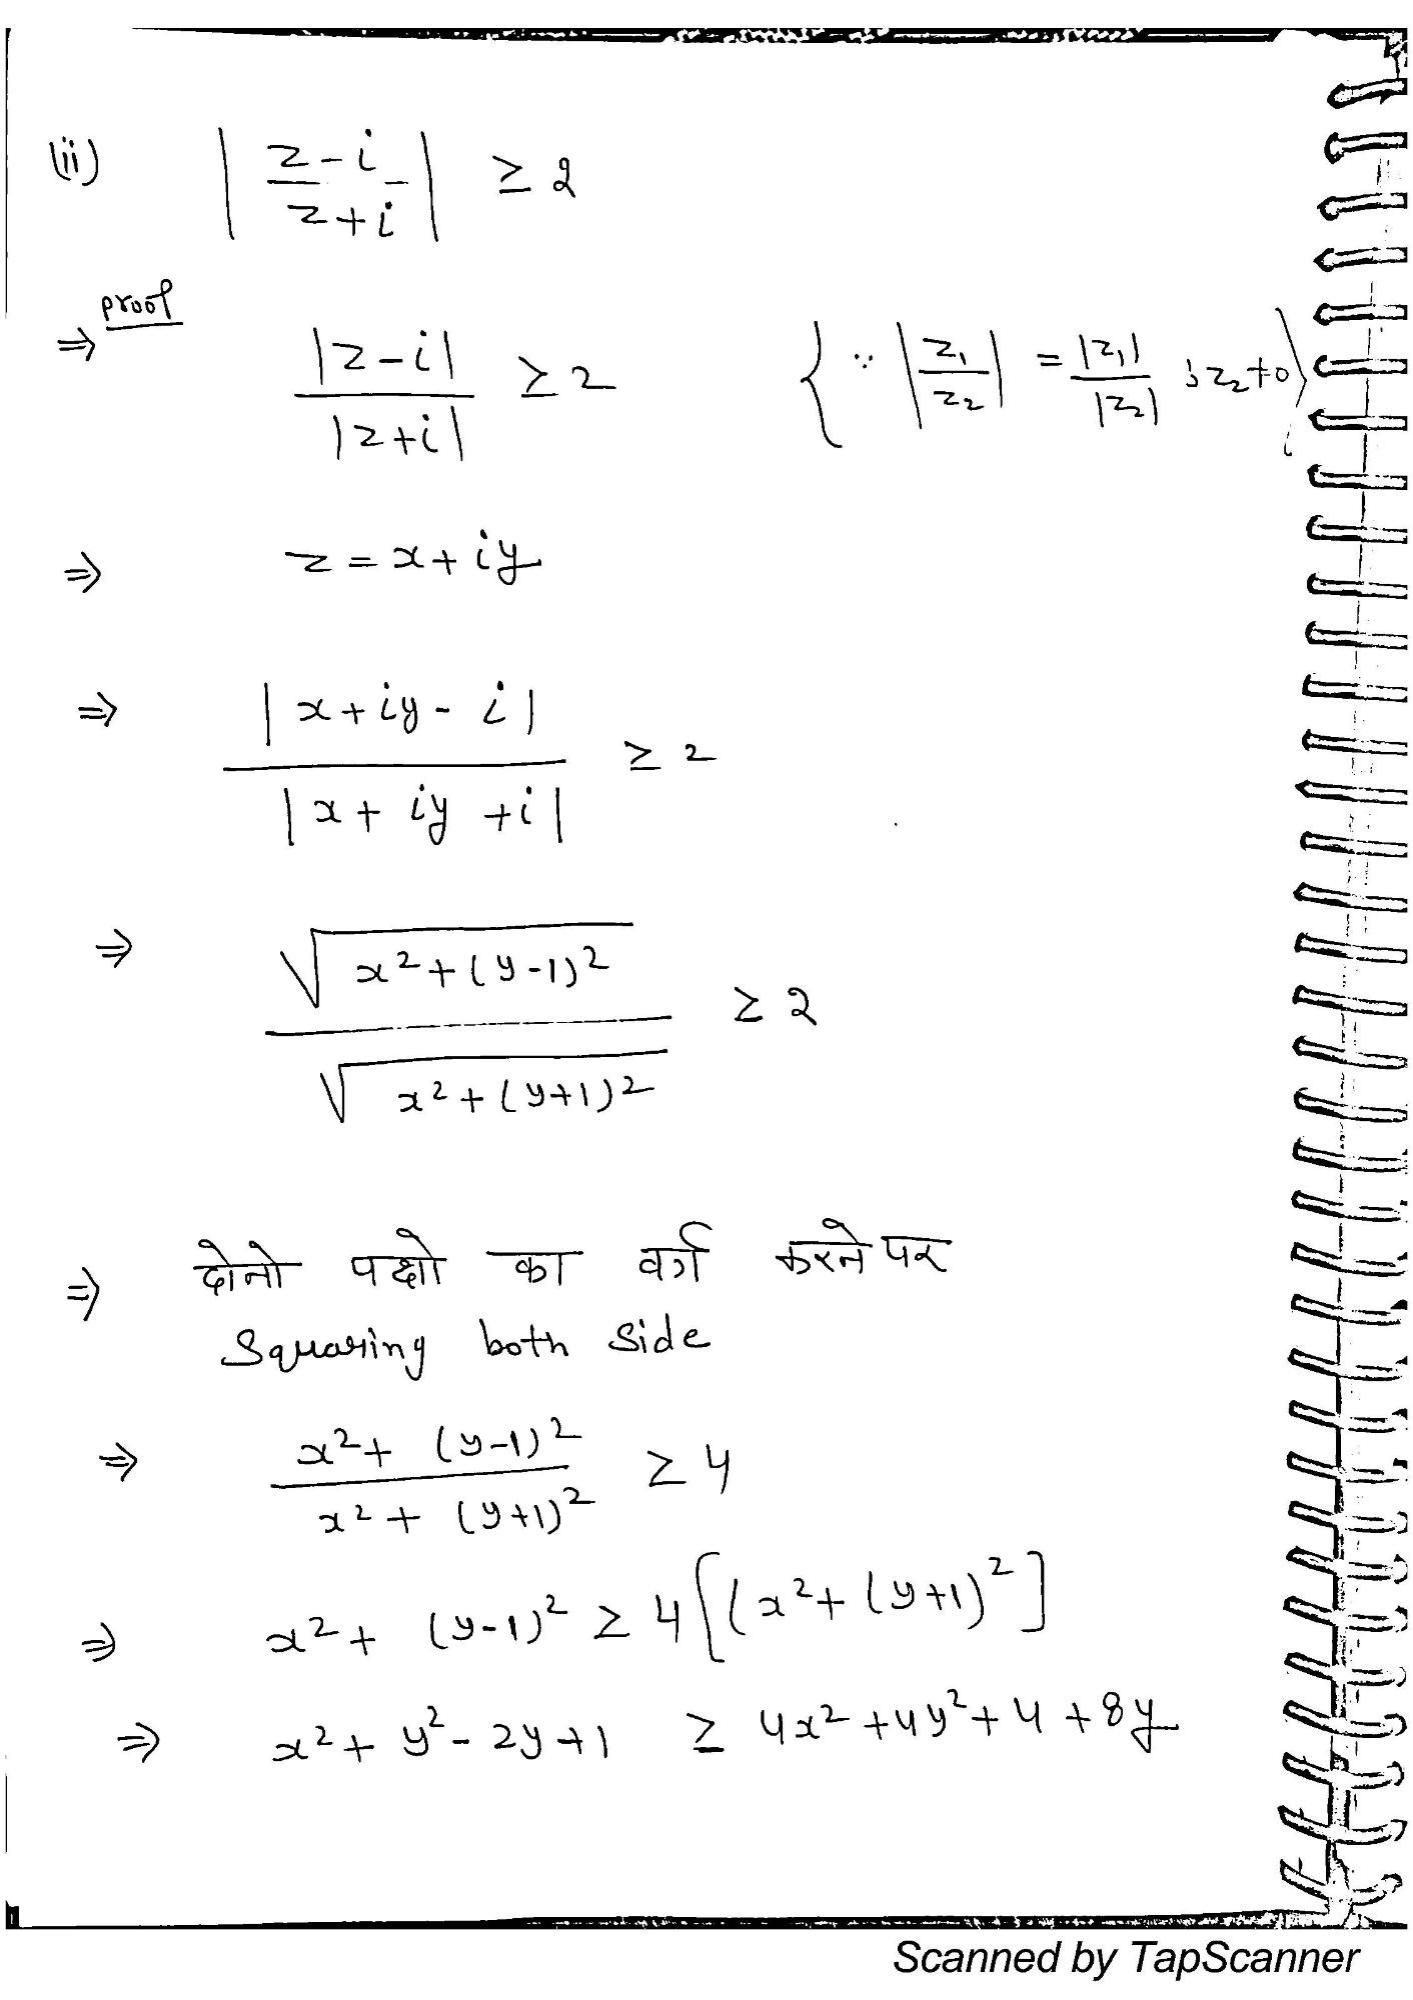 (ii) | z-i / z+i | ≥ 2
proof
⇒ |z-i| / |z+i| ≥ 2 { ∵ |z₁/z₂| = |z₁|/|z₂| ; z₂≠0 }
⇒ z = x+iy
⇒ |x+iy-i| / |x+iy+i| ≥ 2
⇒ √(x²+(y-1)²) / √(x²+(y+1)²) ≥ 2
⇒ दोनो पक्षो का वर्ग करने पर
Squaring both side
⇒ x²+(y-1)² / x²+(y+1)² ≥ 4
⇒ x²+(y-1)² ≥ 4[(x²+(y+1)²]
⇒ x²+y²-2y+1 ≥ 4x²+4y²+4+8y
Scanned by TapScanner